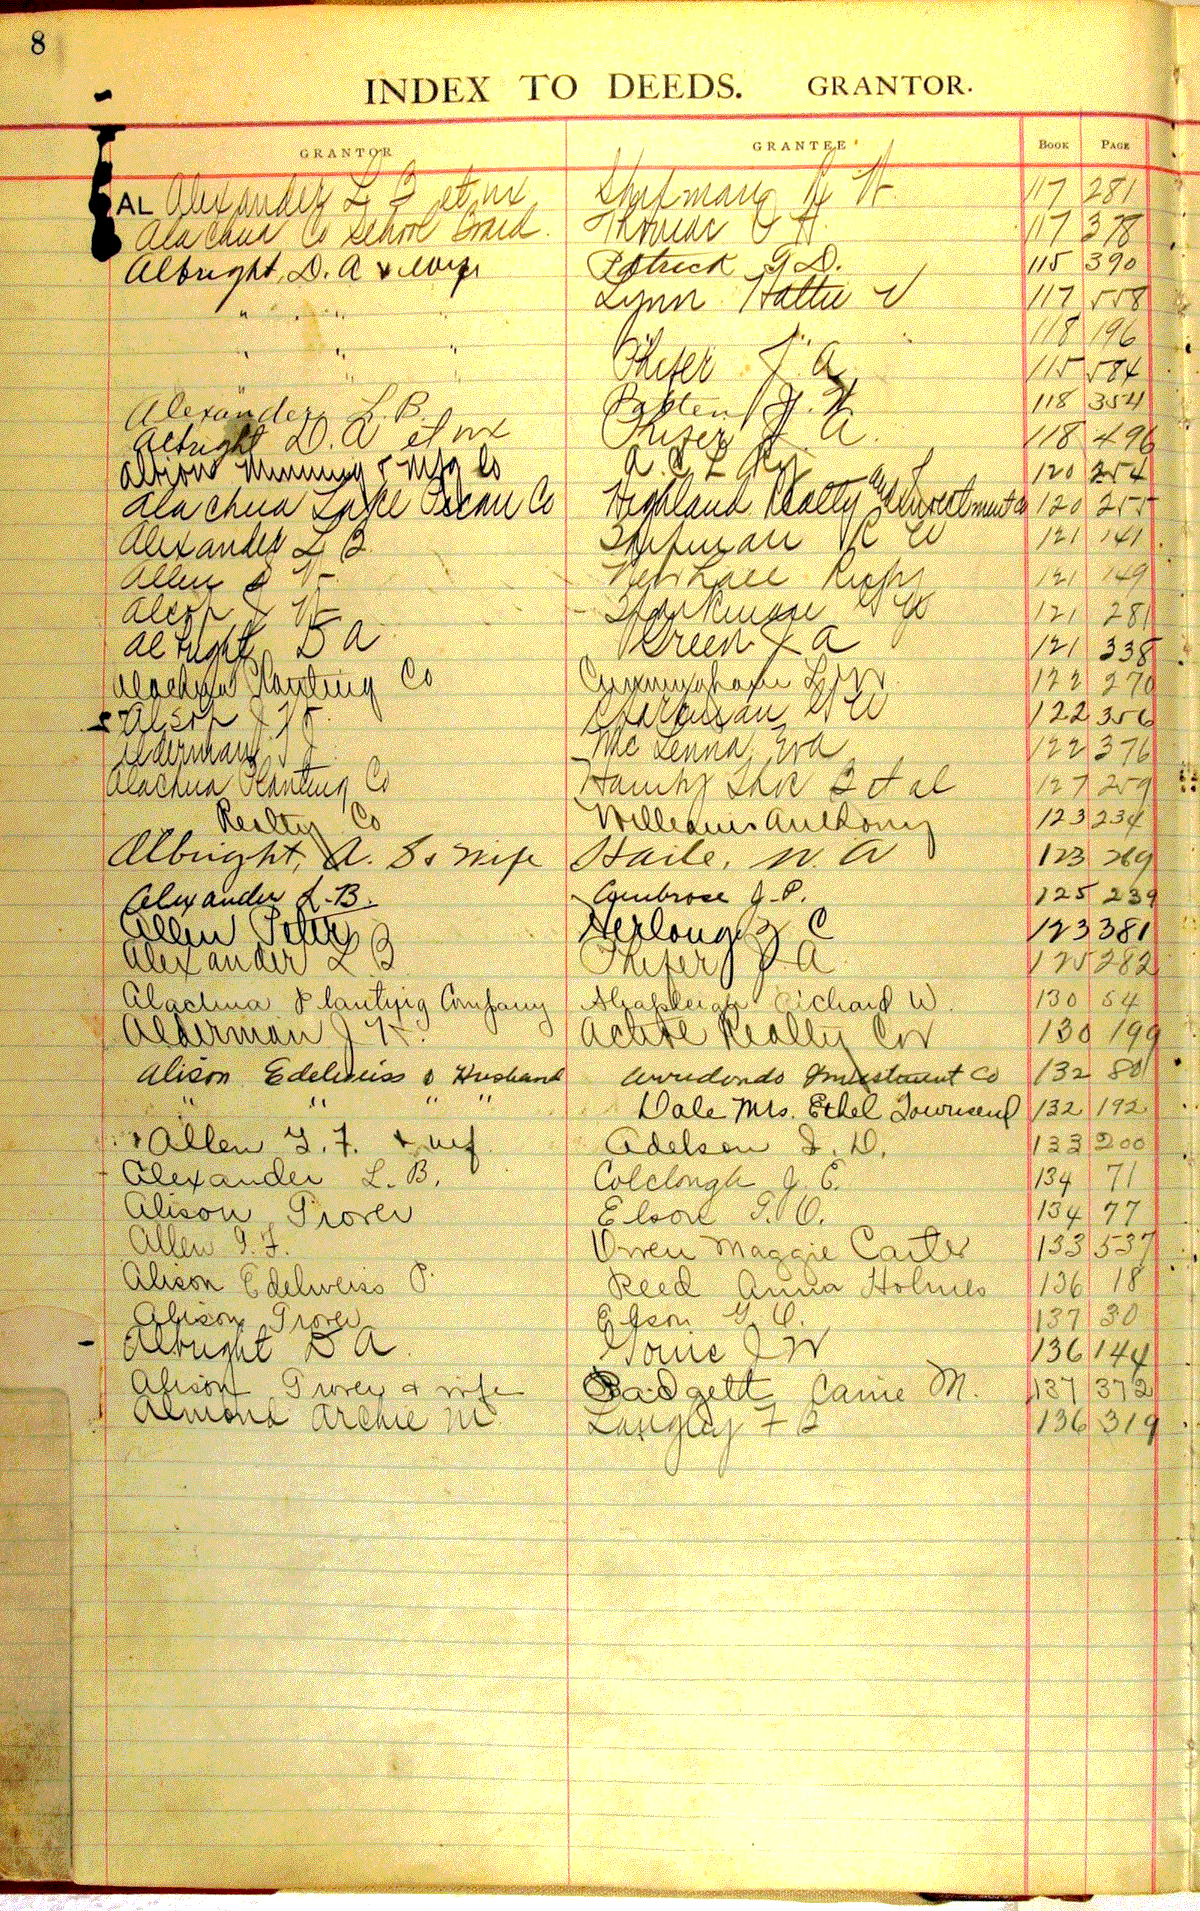 8
INDEX TO DEEDS. GRANTOR.
GRANTOR GRANTEE BOOK PAGE
AL Alexander L B et ux Shipman R W 117 281
Alachua Co School Board Thomas 117 378
Albright, D. A & wife Patrick G D. 115 390
" " " Lynn Hattie V 117 558
" " " " " 118 196
" " " Phifer J. A 115 584
Alexander L. B. 118 354
Albright D. A et ux Phifer J. A. 118 496
Albion Mining & Mfg Co A. C. L Ry 120 254
Alachua Lake Pecan Co Highland Realty and Investment Co 120 255
Alexander L B Shipman R W 121 141
Allen J W 121 149
Alsop J W Sparkman 121 281
Albright D A Green J A 121 338
Alachua Planting Co Cunningham 122 270
Alsop J W Sparkman 122 356
Alderman J McKenna Eva 122 376
Alachua Planting Co B et al 127 259
Realty Co Williams Anthony 123 234
Albright, A. & wife Haile, W. A 123 269
Alexander L. B. Ambrose J. P. 125 239
Allen Peter Herlong Z C 123 381
Alexander L B Phifer J. A 125 282
Alachua Planting Company Shapleigh Richard W. 130 54
Alderman J Active Realty Cor 130 199
Alison Edelweiss & Husband Arredondo Investment Co 132 80
" " " " Dale Mrs. Ethel Townsend 132 192
Allen G. F. & wf Adelson I. D. 133 200
Alexander L. B. Colclough J. E. 134 71
Alison Prover Elson G. O. 134 77
Allen G. F. Owen Maggie Carter 133 537
Alison Edelweiss P. Reed Anna Holmes 136 18
Alison Prover Elson G. O. 137 30
Albright D A. J W 136 144
Alison Prover & wife Padgett Carrie M. 137 372
Almond Archie M Langley F B 136 319